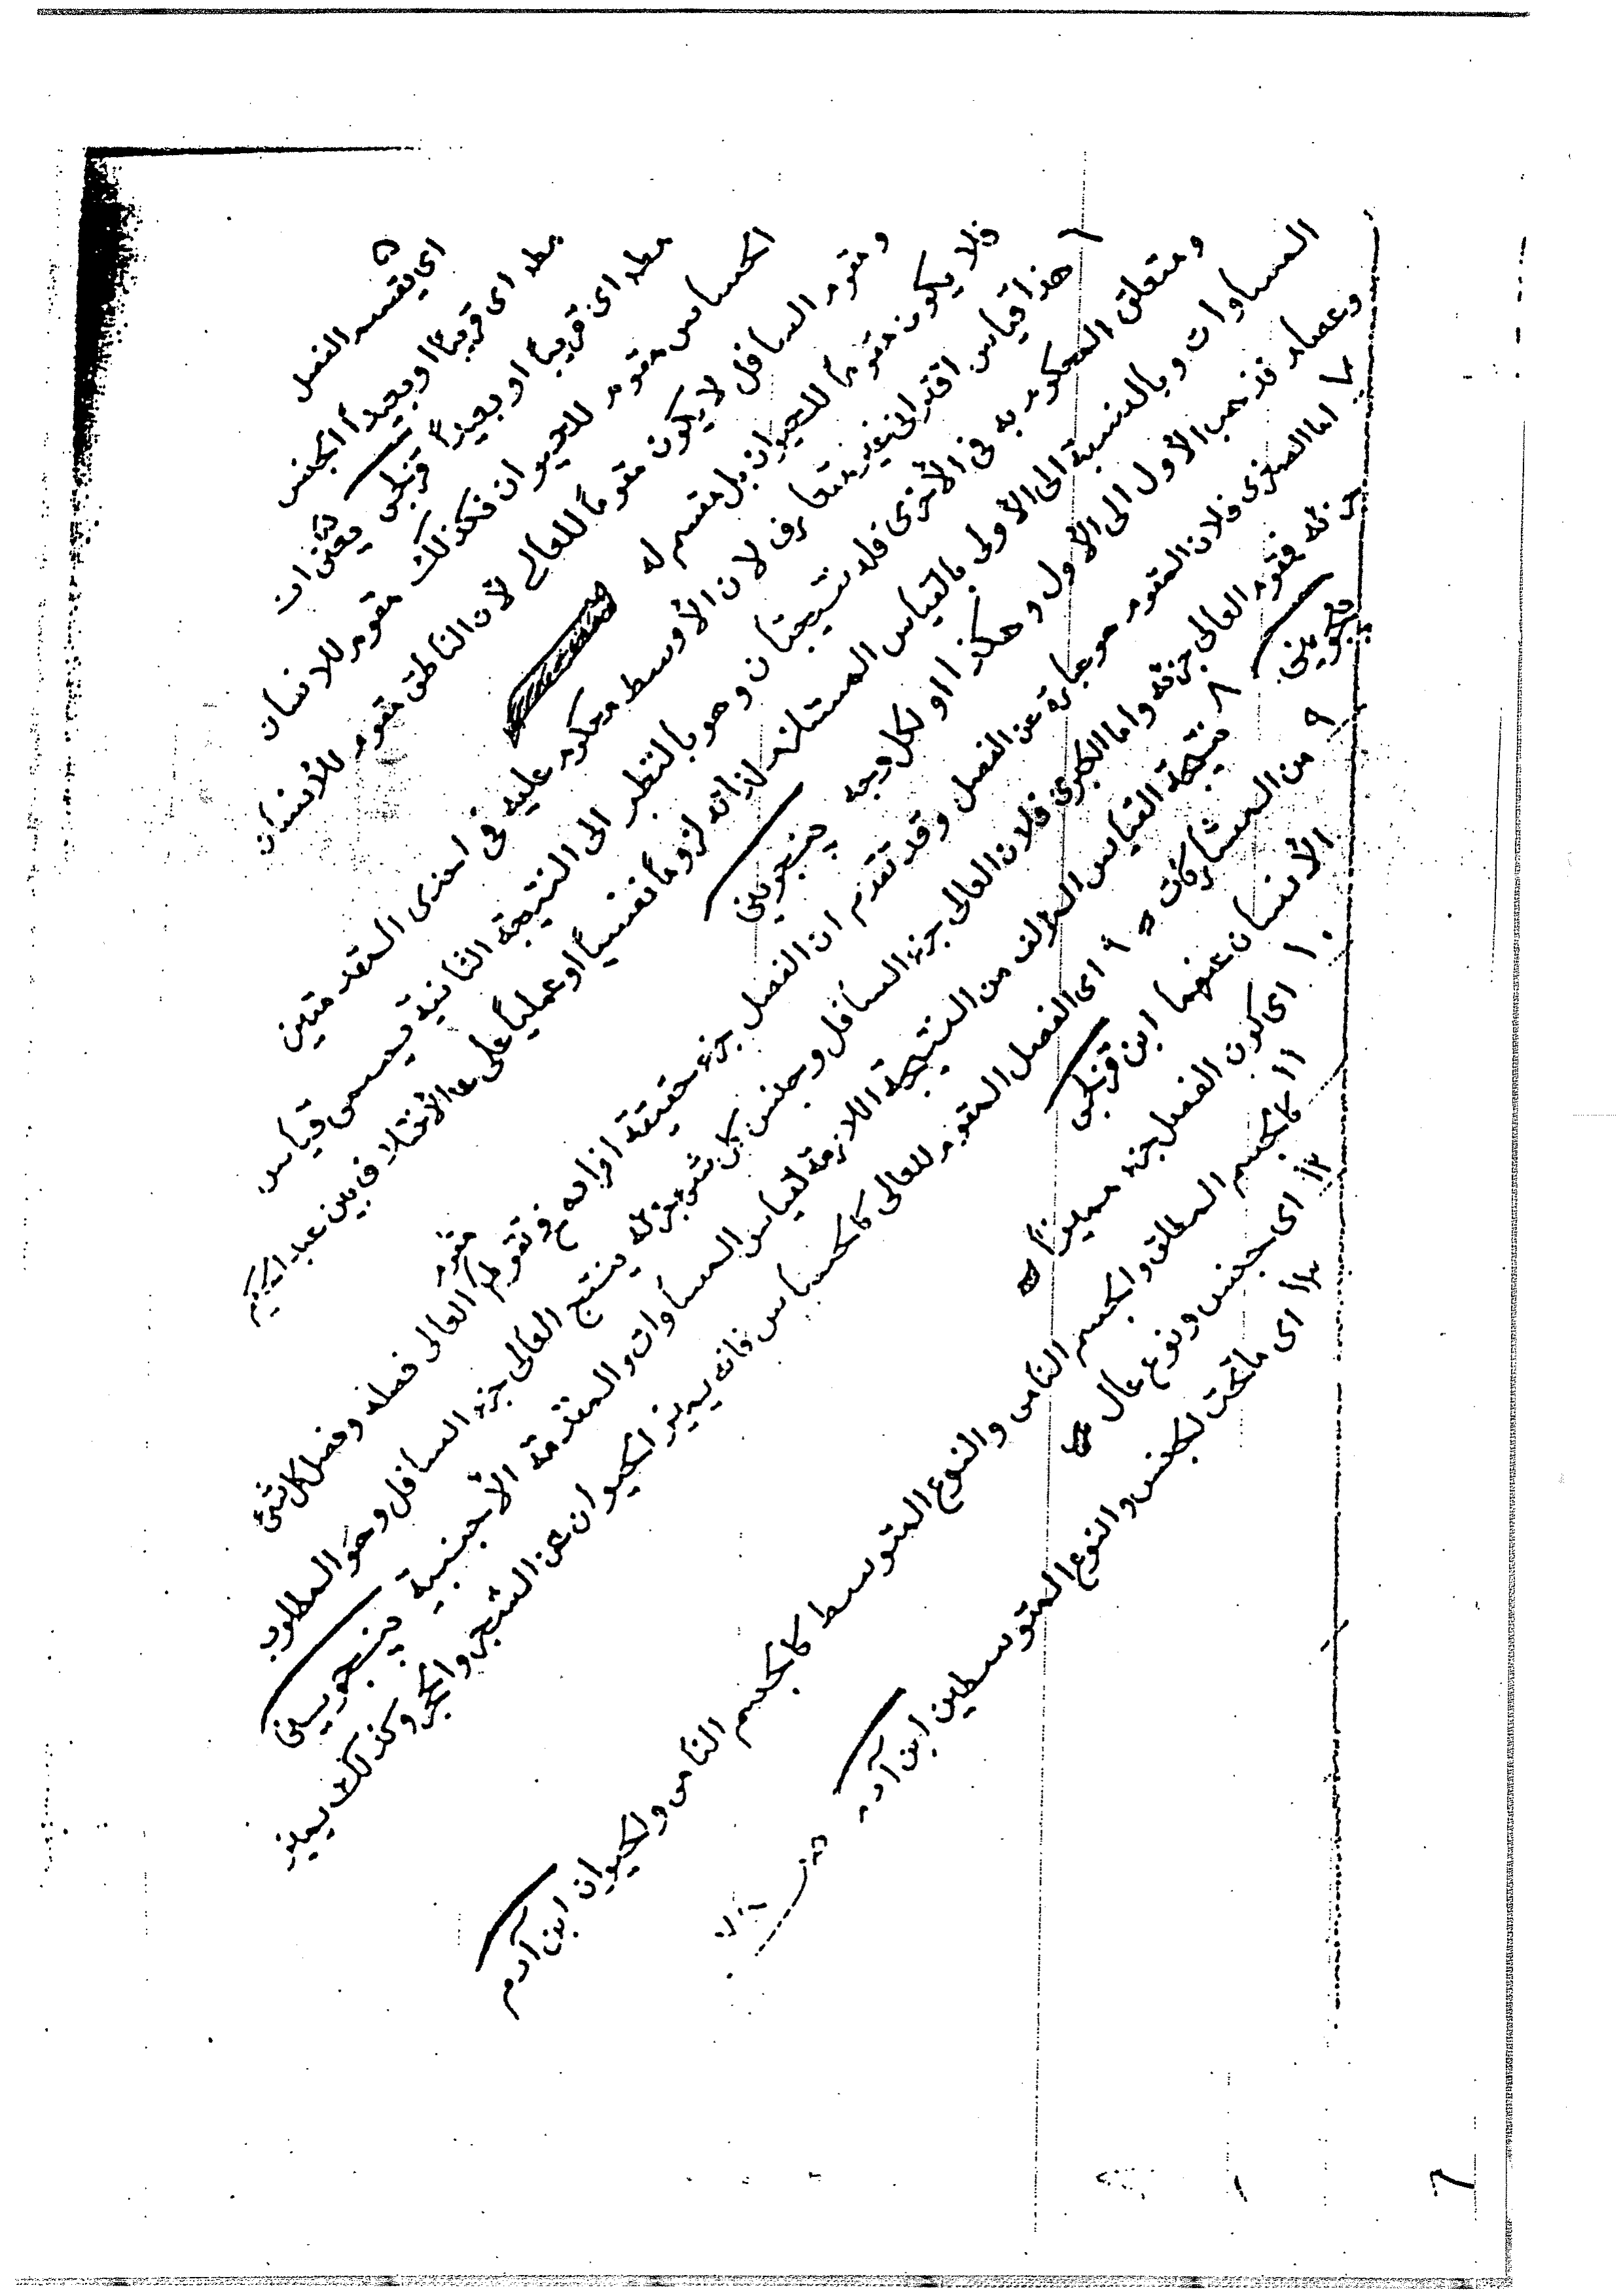 ٥ اى يقسم الفصل
مطلقا اى قريبًا او بعيدًا الجنس
مطلقا اى قريبًا او بعيدًا قزلجى يعنى ان
الحساس مقوم للحيوان فكذلك مقوم للانسان
ومقوم السافل لا يكون مقومًا للعالى لأن الناطق مقوم للأنسان
فلا يكون مقومًا للحيوان بل مقسم له
٦ هذا قياس اقترانى غير متعارف لان الأوسط محكوم عليه فى احدى المقدمتين
ومتعلق المحكوم به فى الأخرى فله نتيجتان وهو بالنظر الى النتيجة الثانية يسمى قياس
المساوات وبالنسبة الى الأولى بالقياس المستلزم لذاته لزومًا نفسيًا او عمليًا على الأختلاف بين عبدالحكيم
وعصام فذهب الأول الى الأول وهكذا او لكل وجه پنجوينى
٧ اما الصغرى فلان المقوم عبارة عن الفصل وقد تقدم ان الفصل جزء حقيقة افراده فمقوم العالى فصله وفصل كل شئ
جزئه فمقوم العالى جزئه واما الكبرى فلان العالى جزء السافل وجنس كل شئ جزء له ينتج العالى جزء السافل وهو المطلوب
پنجوينى ٨ نتيجة القياس المؤلف من النتيجة اللازمة لقياس المساوات والمقدمة الأجنبية پنجوينى
٩ من المشاركات ٩ اى الفصل المقوم للعالى كالحساس فانه يميز الحيوان عن الشجر والحجر وكذلك يميز
الأنسان عنهما ابن قزلجى
١٠ اى كون الفصل جزء مميزًا
١١ كالجسم المطلق والجسم النامى والنوع المتوسط كالجسم النامى والحيوان ابن آدم
١٢ اى جنس ونوع عال
١٣ اى ما تحت الجنس والنوع المتوسطين ابن آدم